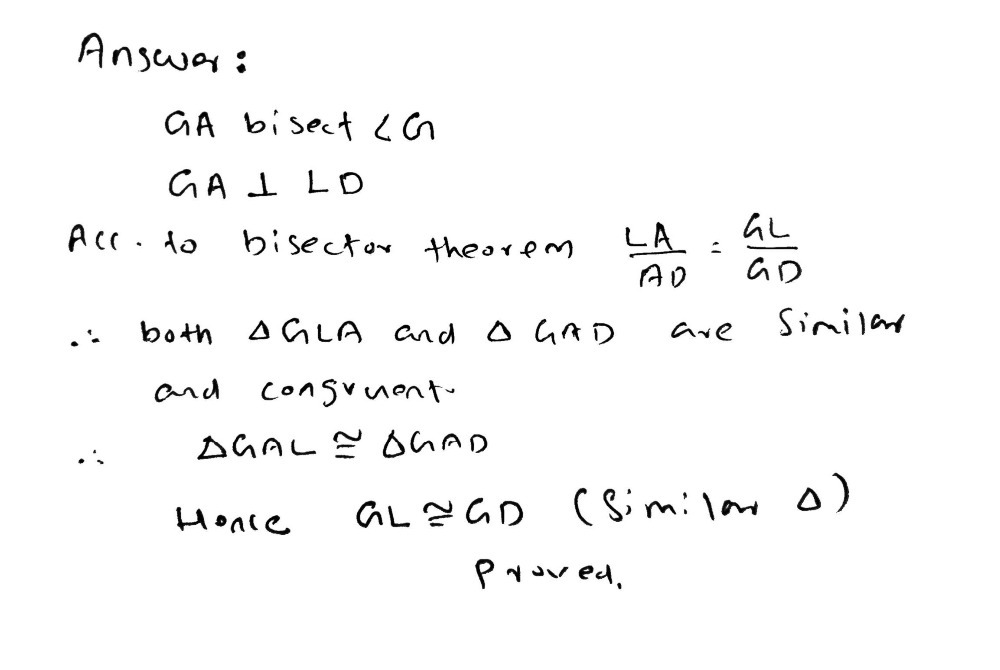 Answer:
GA bisect <G
GA ⊥ LD
Acc. to bisector theorem LA/AD = GL/GD
∴ both ΔGLA and ΔGAD are similar
and congruent.
∴ ΔGAL ≅ ΔGAD
Hence GL ≅ GD (Similar Δ)
Proved.